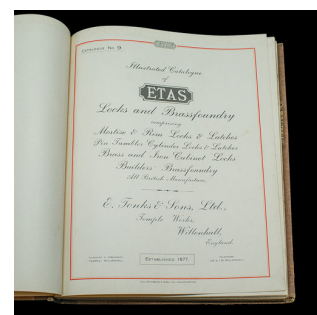 Catalogue No. 9.
Illustrated Catalogue
of
ETAS
Locks and Brassfoundry
comprising
Mortise & Rim Locks & Latches
Pin Tumbler Cylinder Locks & Latches
Brass and Iron Cabinet Locks
Builders' Brassfoundry
All British Manufacture
E. Tonks & Sons, Ltd.,
Temple Works,
Willenhall,
England.
Established 1877.